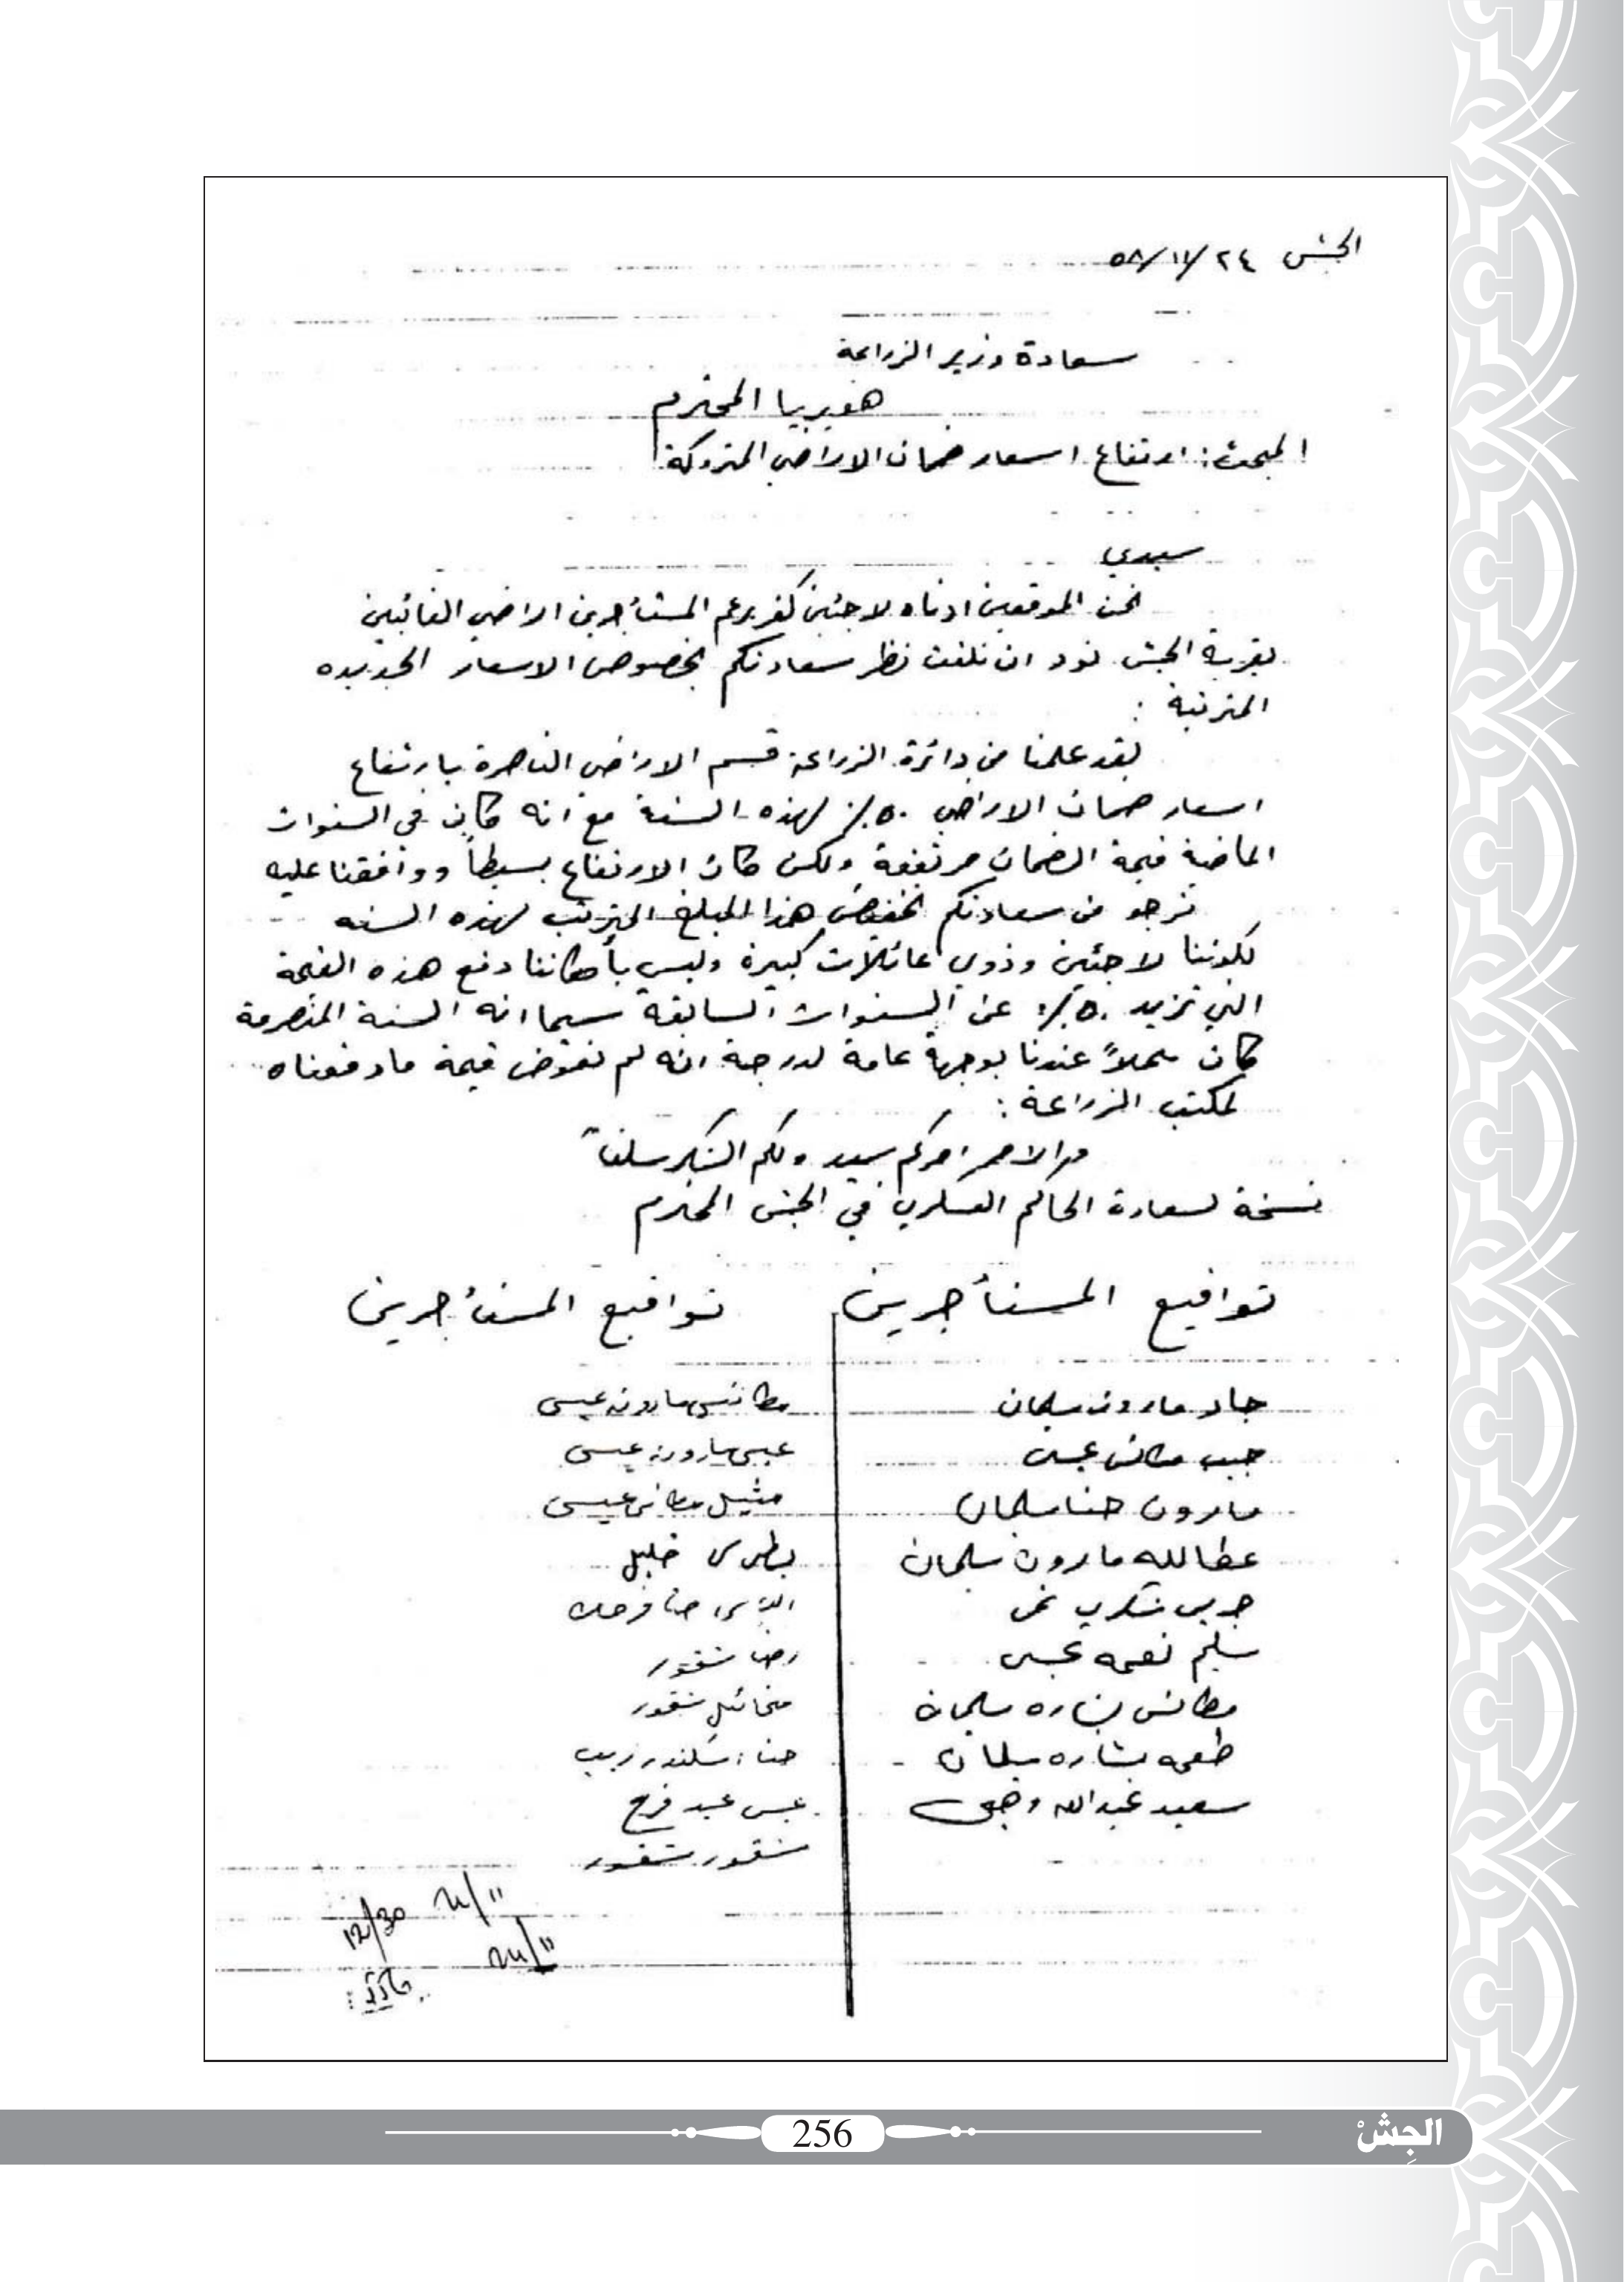 الجش ٢٤/١١/٥٨
سعادة وزير الزراعة
هقيريا المحترم
المبحث: ارتفاع اسعار ضمان الاراضي المتروكة
سيدي
نحن الموقعين ادناه لاجئين كفربرعم المستأجرين اراضي الغائبين
بقرية الجش نود ان نلفت نظر سعادتكم بخصوص الاسعار الجديده
المترتبة :
لقد علمنا من دائرة الزراعة قسم الاراضي الناصرة بارتفاع
اسعار ضمان الاراضي ٥٠٪ لهذه السنة مع انه كان في السنوات
الماضية قيمة الضمان مرتفعة ولكن كان الارتفاع بسيطاً ووافقنا عليه
نرجو من سعادتكم تخفيض هذا المبلغ المترتب لهذه السنه
لكوننا لاجئين وذوي عائلات كبيرة وليس بأمكاننا دفع هذه القيمة
التي تزيد ٥٠٪ عن السنوات السابقة سيما انه السنة المنصرمة
كان محلاً عندنا بوجهة عامة لدرجة انه لم نعوض قيمة ما دفعناه
لمكتب الزراعة :
والامر امركم سيد ولكم الشكر سلفاً
نسخة لسعادة الحاكم العسكري في الجش المحترم
تواقيع المستأجرين تواقيع المستأجرين
جاد مارون سليمان مطانس مارون عيسى
حبيب مطانس عيسى عيسى مارون عيسى
مارون حنا سليمان ميشيل مطانس عيسى
عطالله مارون سليمان بطرس خليل
جريس شكري نمر الياس حنا فرحات
سليم نعمه عيسى شقور
مطانس بشاره سليمان مخائيل شقور
طعمه بشاره سليمان حنا اسكندر زيب
سعيد عبدالله وهبي عيسى عيد فرح
شقور شقور
12/30
256
الجِشْ